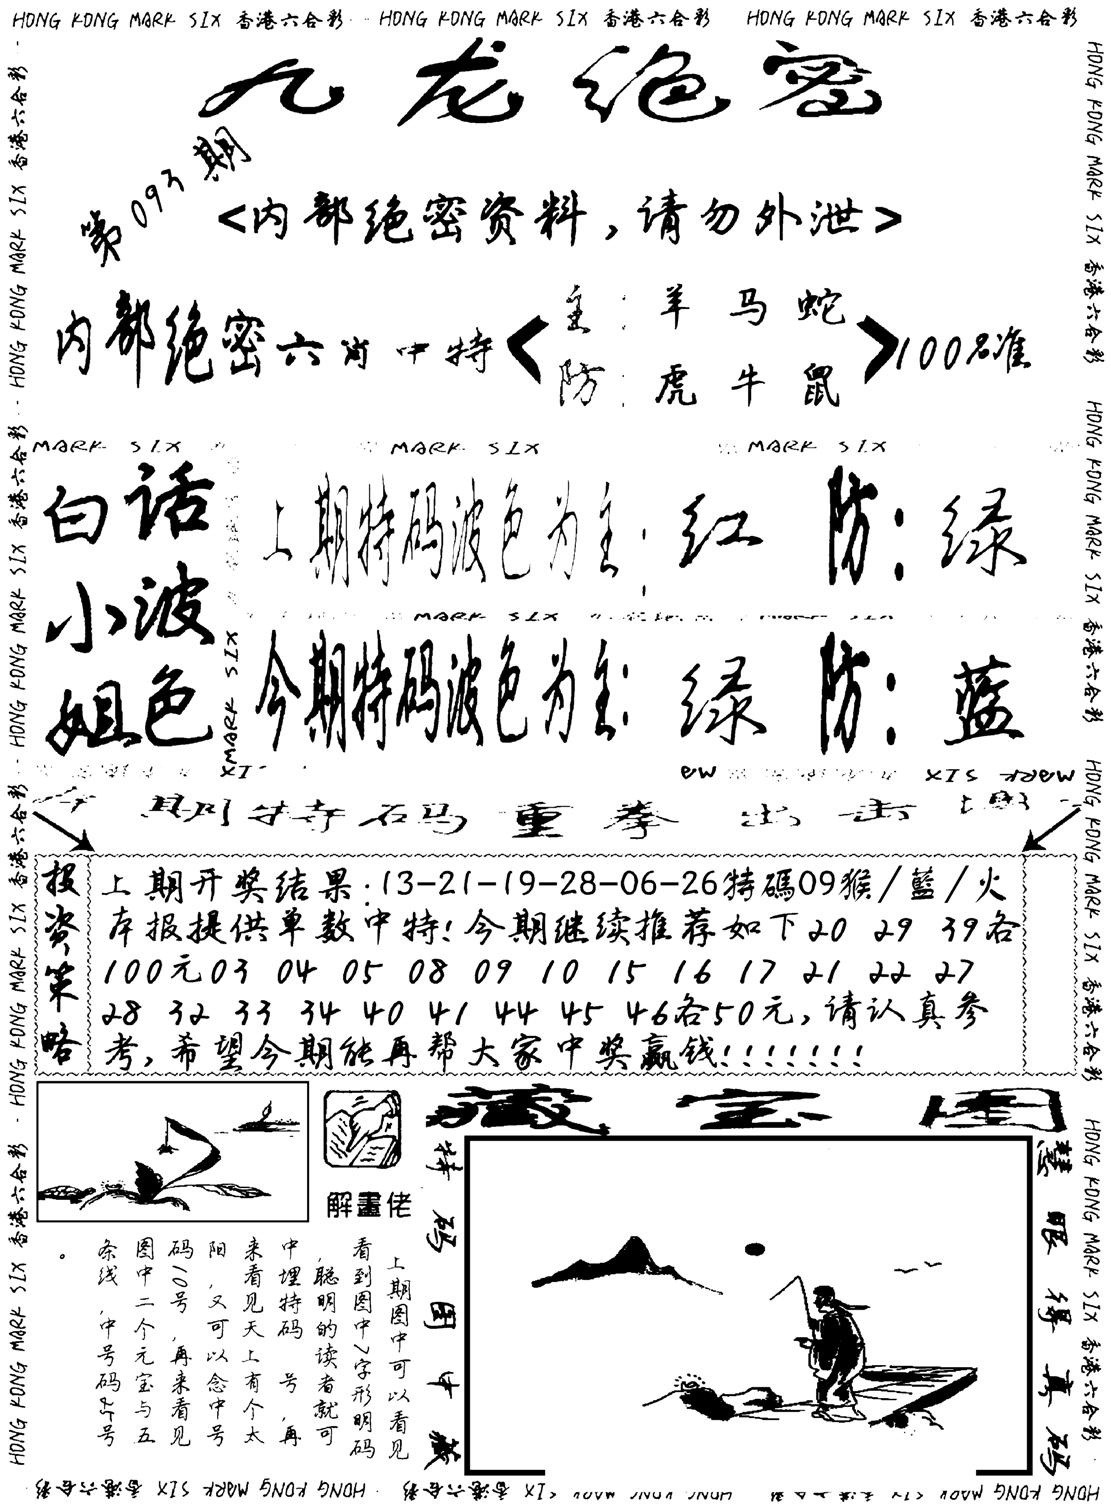 HONG KONG MARK SIX 香港六合彩 HONG KONG MARK SIX 香港六合彩 HONG KONG MARK SIX 香港六合彩
九龙绝密
第093期
<内部绝密资料,请勿外泄>
内部绝密六肖中特
主:羊马蛇
防:虎牛鼠
100%准
MARK SIX MARK SIX MARK SIX
白话
小波
姐色
上期特码波色为主:红 防:绿
MARK SIX MARK SIX
今期特码波色为主:绿 防:蓝
今期特码重拳出击
投资策略
上期开奖结果:13-21-19-28-06-26特碼09猴/藍/火
本报提供单数中特!今期继续推荐如下20 29 39各
100元03 04 05 08 09 10 15 16 17 21 22 27
28 32 33 34 40 41 44 45 46各50元,请认真参
考,希望今期能再帮大家中奖赢钱!!!!!!!
藏宝图
解畫佬
特码图中藏
慧眼得真码
上期图中可以看见
看到图中7字形明码
,聪明的读者就可
中埋特码 号,再
来看见天上有个太
阳,又可以念中号
码10号,再来看见
图中二个元宝与五
条线,中号码25号
。
HONG KONG MARK SIX 香港六合彩